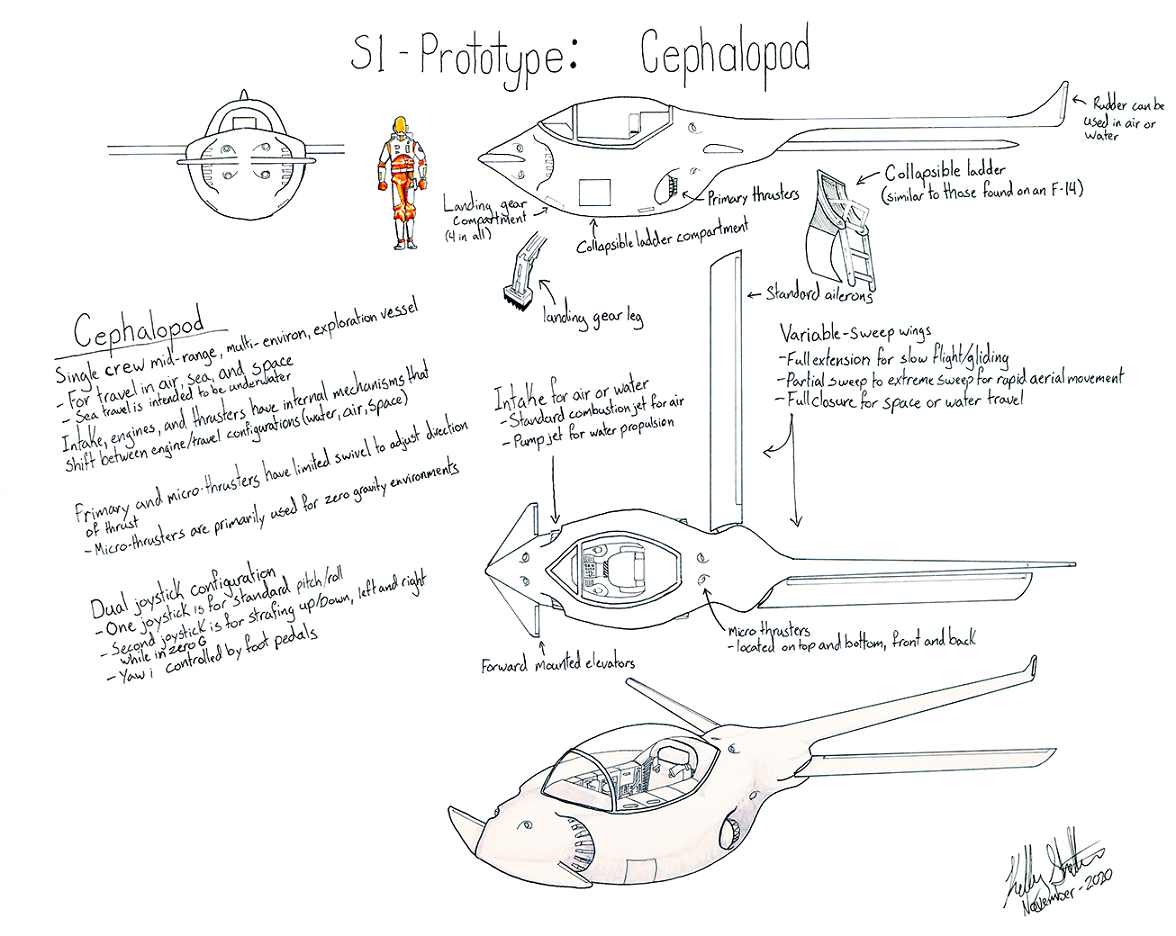 S1 - Prototype: Cephalopod
Rudder can be
used in air or
water
Collapsible ladder
(similar to those found on an F-14)
Primary thrusters
Landing gear
compartment
(4 in all)
Collapsible ladder compartment
landing gear leg
Standard ailerons
Cephalopod
Single crew mid-range, multi-environ, exploration vessel
- For travel in air, sea, and space
- Sea travel is intended to be underwater
Intake, engines, and thrusters have internal mechanisms that
shift between engine/travel configurations (water, air, space)
Primary and micro-thrusters have limited swivel to adjust direction
of thrust
- Micro-thrusters are primarily used for zero gravity environments
Dual joystick configuration
- One joystick is for standard pitch/roll
- Second joystick is for strafing up/down, left and right
while in zero G
- Yaw i controlled by foot pedals
Intake for air or water
- Standard combustion jet for air
- Pump jet for water propulsion
Variable-sweep wings
- Full extension for slow flight/gliding
- Partial sweep to extreme sweep for rapid aerial movement
- Full closure for space or water travel
micro thrusters
- located on top and bottom, front and back
Forward mounted elevators
Kelly
November - 2020